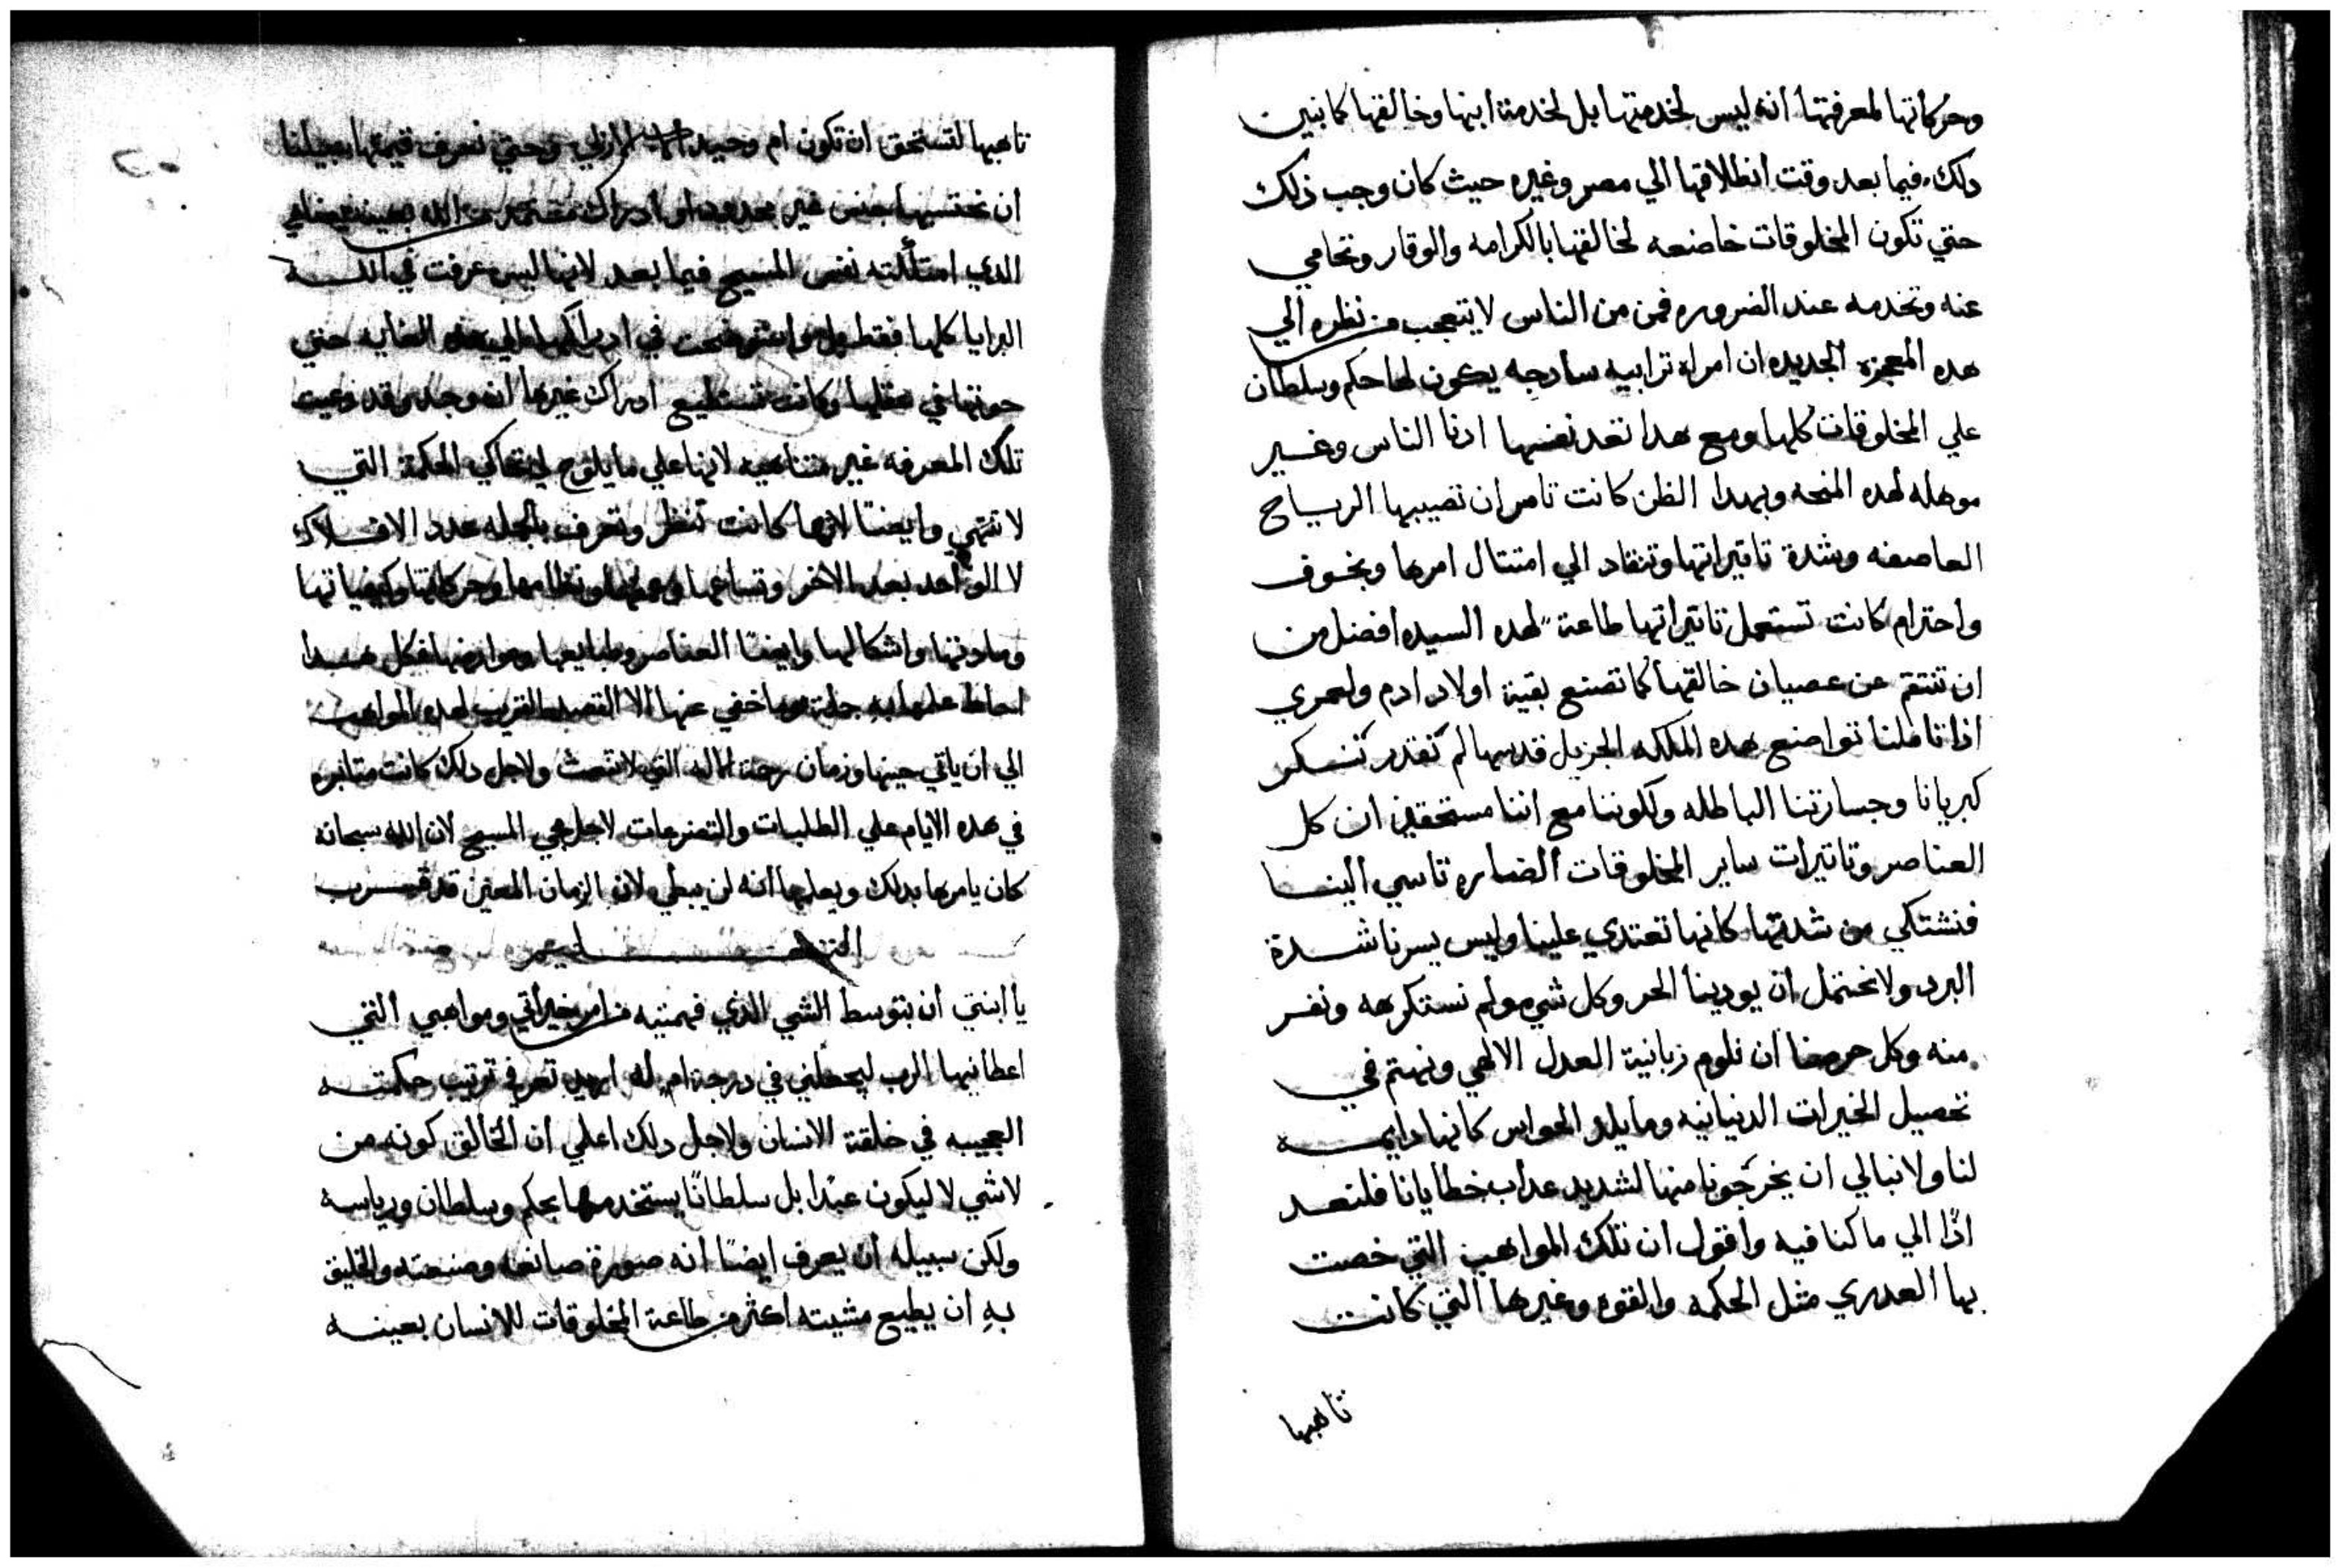 وحركاتها لمعرفتها انه ليس لخدمتها بل لخدمة ابنها وخالقها كما نبين
دلك فيما بعد وقت انطلاقها الي مصر وغيره حيث كان وجب ذلك
حتي تكون المخلوقات خاضعه لخالقها بالكرامه والوقار وتحامي
عنه وتخدمه عند الضروره فمن من الناس لا يتعجب من نظره الي
هده المعجزة الجديده ان امراة ترابيه سادجه يكون لها حكم وسلطان
علي المخلوقات كلها ومع هدا تعد نفسها ادنا الناس وغير
موهله لهده المنحه وبهدا الظن كانت تامر ان تصيبها الرياح
العاصفه وشدة تاتيراتها وتنقاد الي امتتال امرها وبخوف
واحترام كانت تستعمل تاتيراتها طاعةً لهده السيده افضل من
ان تنتقم عن عصيان خالقها كما تصنع بقية اولاد ادم ولعمري
اذا تاملنا تواضع هده الملكه الجزيل قدسها لم تقدر تنسكر
كبريانا وجسارتنا الباطله ولكوننا مع اننا مستحقين ان كل
العناصر وتاتيرات ساير المخلوقات الضاره تاسي الينا
فنشتكي من شدتها كانها تعتدي علينا وليس يسرنا شدة
البرد ولا نحتمل ان يودينا الحر وكل شي مولم نستكرهه ونفر
منه وكل حرصنا ان نلوم زبانية العدل الالهي ونهتم في
تحصيل الخيرات الدنيانيه وما يلد الحواس كانها دايمه
لنا ولا نبالي ان يخرجونا منها لشديد عداب خطايانا فلنعد
اذًا الي ما كنا فيه واقول ان تلك المواهب التي خصت
بها العدري مثل الحكمه والقوه وغيرها التي كانت
تاهبها
تاهبها لتستحق ان تكون ام وحيد الازلي وحتي نعرف قيمتها
ان نحتسبها بجنس غير محدود او ادراك من الله بعينه
الدي امتلكته نفس المسيح فيما بعد لانها ليس عرفت في الله
البرايا كلها فقط بل في الغايه حتي
حوتها في عقلها وكانت تستطيع ادراك غيرها لو وجد وقد دعيت
تلك المعرفه غير متناهيه لانها علي ما يلوح لي تحاكي الحكمة التي
لا تنتهي وايضًا لانها كانت تنظر وتعرف بالجمله عدد الافلاك
لا الواحد بعد الاخر ونظامها وحركاتها وكيفياتها
ومادتها واشكالها وايضًا العناصر وطبايعها وعوارضها فكل هدا
احاط علمها به جملة وما خفي عنها الا القصد القريب لهده المواهب
الي ان ياتي حينها وزمان رحمة الاله التي ولاجل دلك كانت متابره
في هده الايام علي الطلبات والتضرعات لاجل مجي المسيح لان الله سبحانه
كان يامرها بدلك ويعلمها انه لن يبطي لان الزمان المعين قد قرب
التعليم
يا ابنتي ان بتوسط الشي الذي فهمتيه من امر خيراتي ومواهبي التي
اعطانيها الرب ليجعلني في درجة ام له اريد تعرفي ترتيب حكمته
العجيبه في خلقة الانسان ولاجل دلك اعلمي ان الخالق كونه من
لاشي لا ليكون عبدًا بل سلطانًا يستخدمها بحكم وسلطان ورياسه
ولكن سبيله ان يعرف ايضًا انه صورة صانعه وصنعته والخليق
بهِ ان يطيع مشيته اكثر من طاعة المخلوقات للانسان بعينه